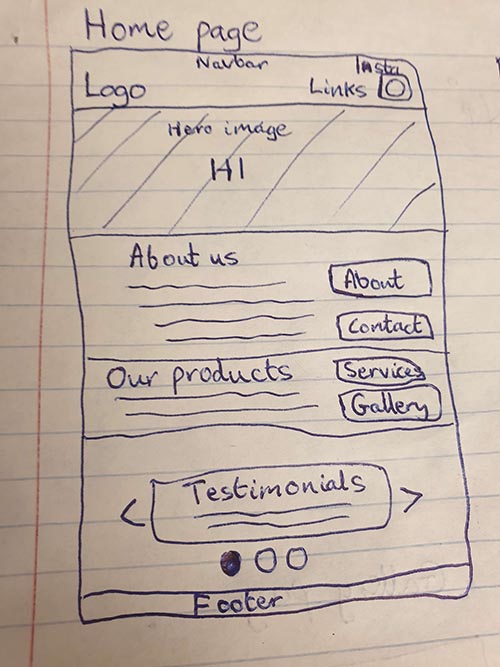 Home page
Navbar
Insta
Logo
Links
Hero image
H1
About us
About
Contact
Our products
Services
Gallery
< Testimonials >
Footer